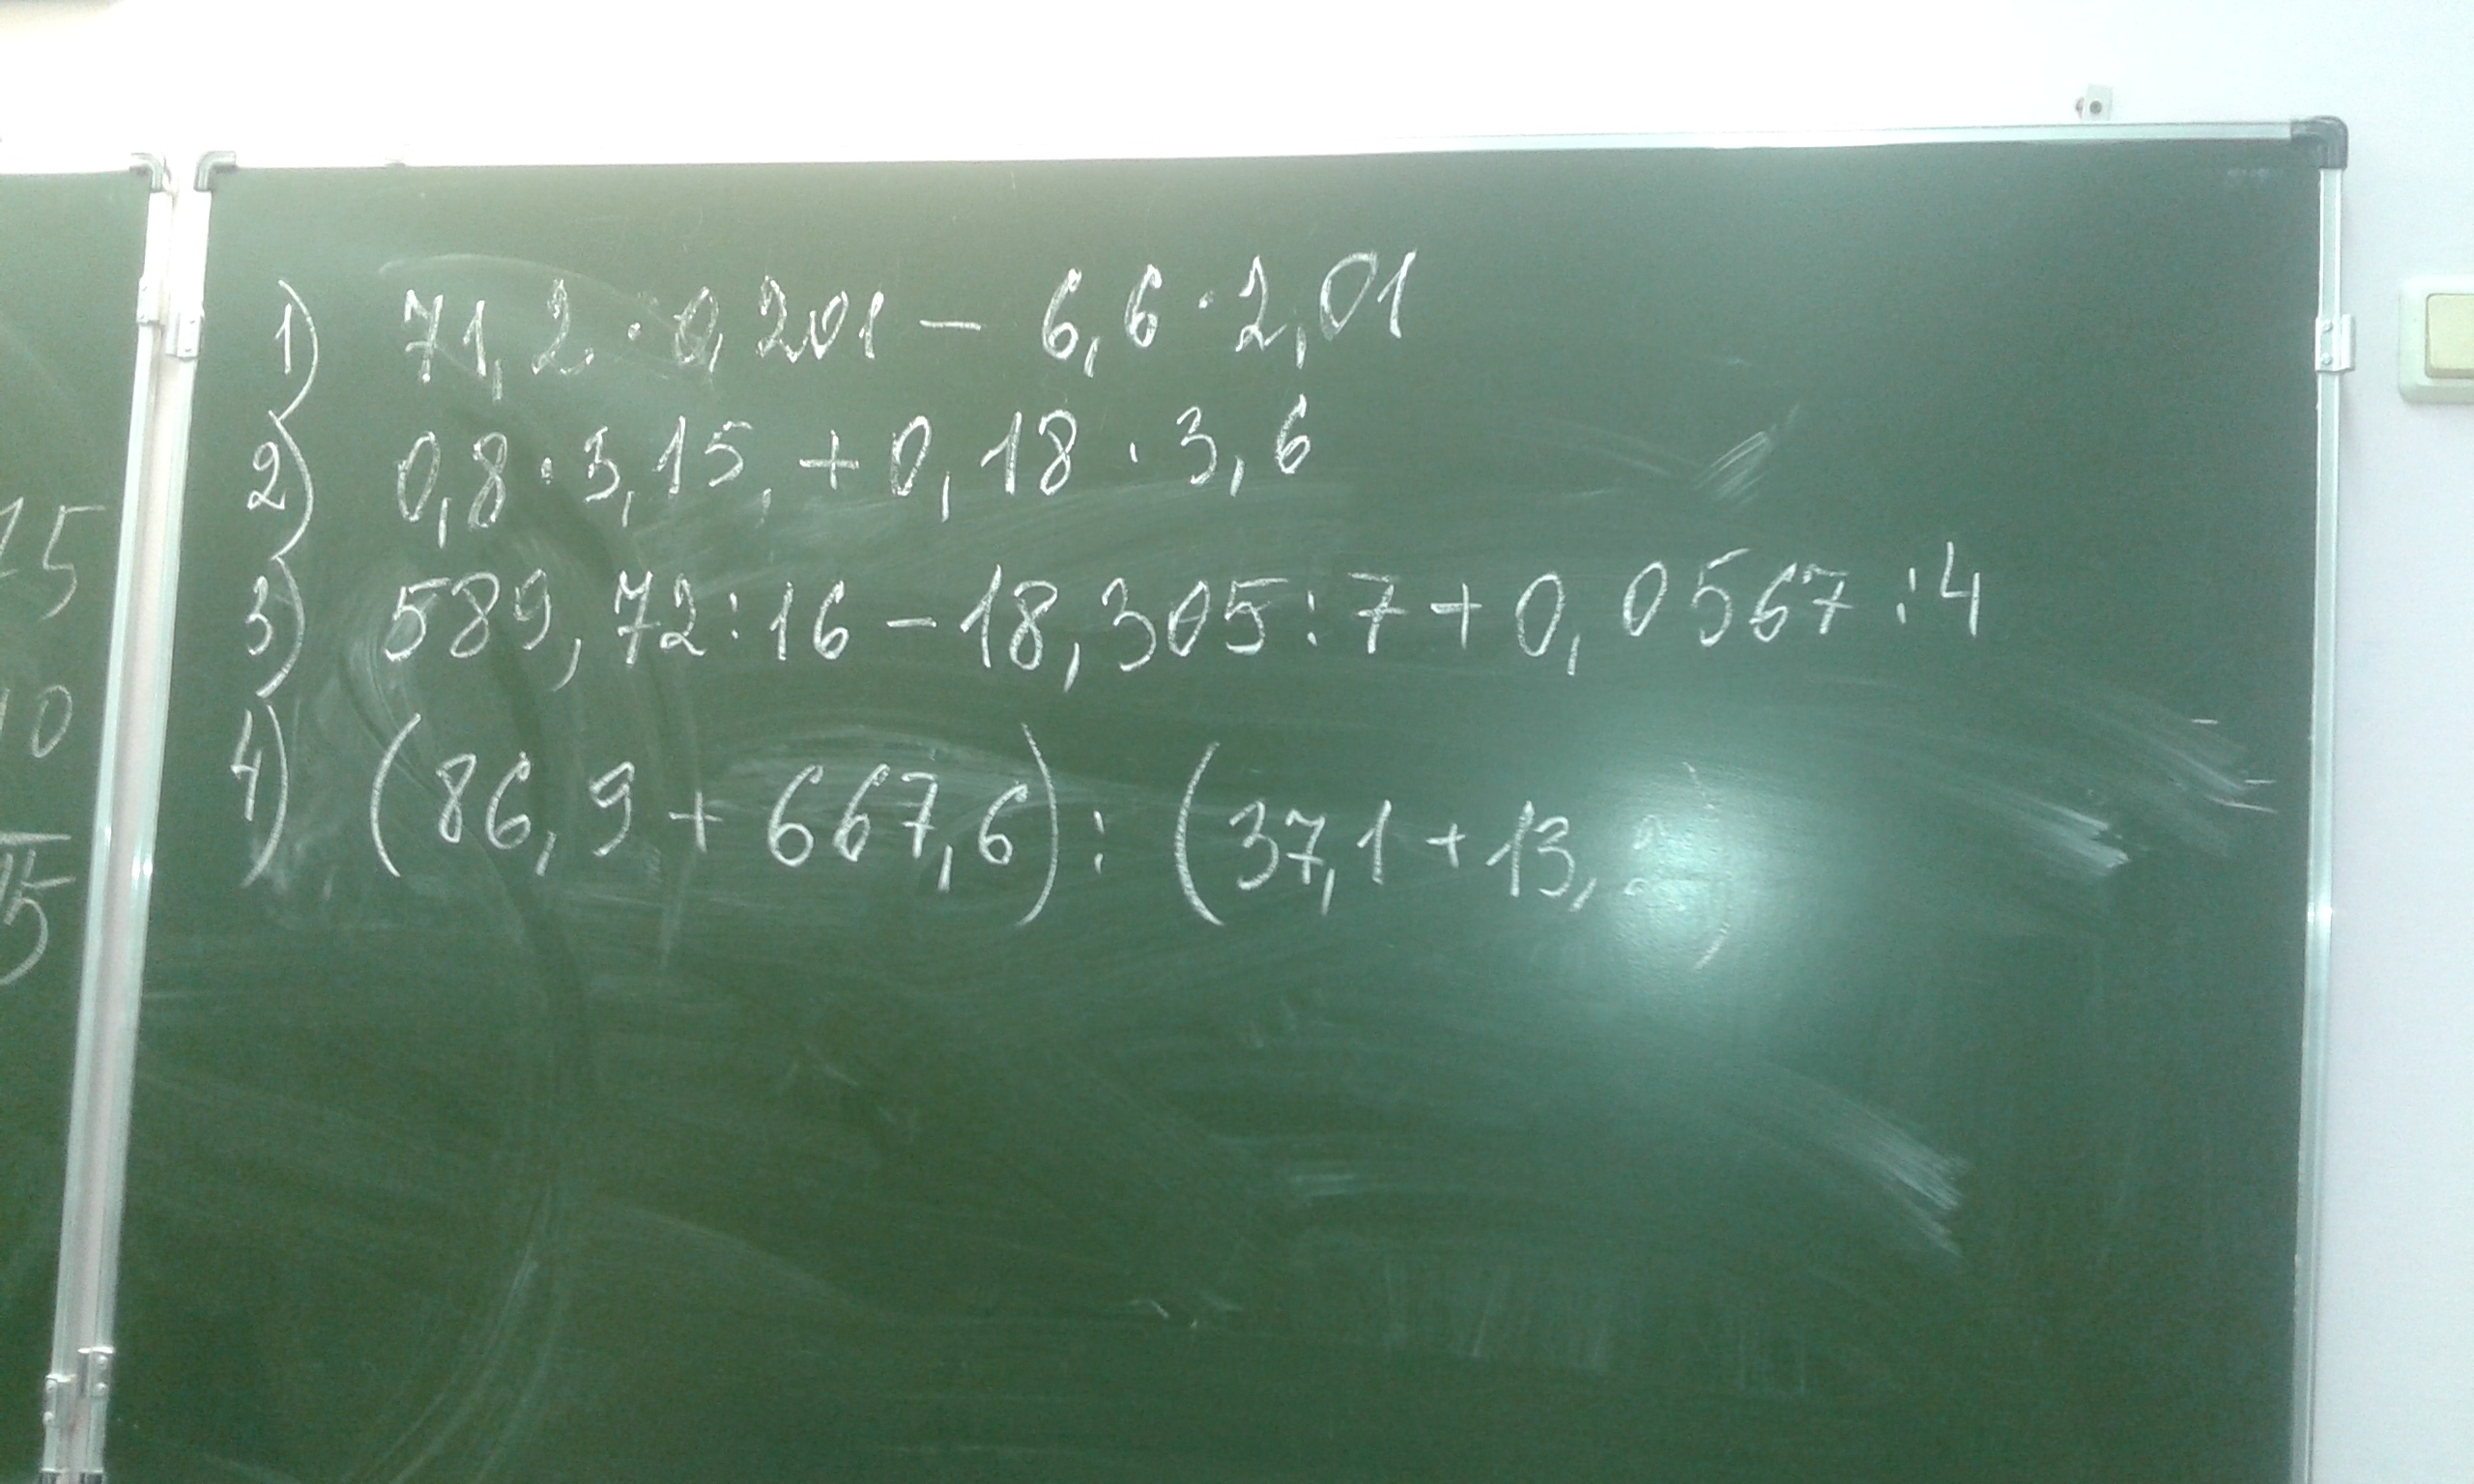 1) 71,2 · 0,201 – 6,6 · 2,01
2) 0,8 · 3,15 + 0,18 · 3,6
3) 589,72 : 16 – 18,305 : 7 + 0,0567 : 4
4) (86,9 + 667,6) : (37,1 + 13, )
15
10
15